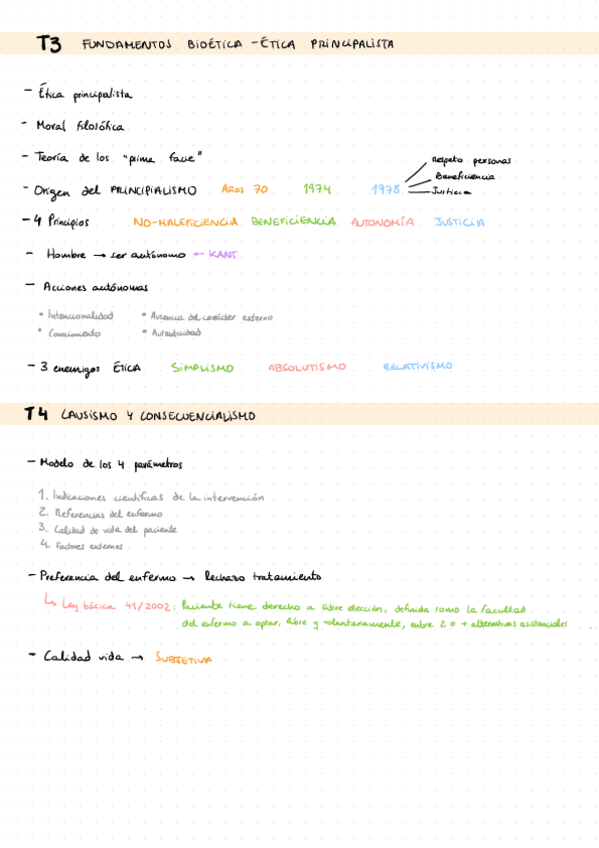 T3 FUNDAMENTOS BIOÉTICA - ÉTICA PRINCIPALISTA
- Ética principalista
- Moral filosófica
- Teoría de los "prima facie"
- Origen del PRINCIPIALISMO Años 70 1974 1978
Respeto personas
Beneficiencia
Justicia
- 4 Principios NO-MALEFICIENCIA BENEFICIENCIA AUTONOMÍA JUSTICIA
- Hombre → ser autónomo ← KANT
- Acciones autónomas
* Intencionalidad * Ausencia del carácter externo
* Conocimiento * Autenticidad
- 3 enemigos ÉTICA SIMPLISMO ABSOLUTISMO RELATIVISMO
T4 CAUSISMO Y CONSECUENCIALISMO
- Modelo de los 4 parámetros
1. Indicaciones científicas de la intervención
2. Referencias del enfermo
3. Calidad de vida del paciente
4. Factores externos
- Preferencia del enfermo → Rechazo tratamiento
↳ Ley básica 41/2002: Paciente tiene derecho a libre elección, definida como la facultad
del enfermo a optar, libre y voluntariamente, entre 2 o + alternativas asistenciales
- Calidad vida → SUBJETIVA